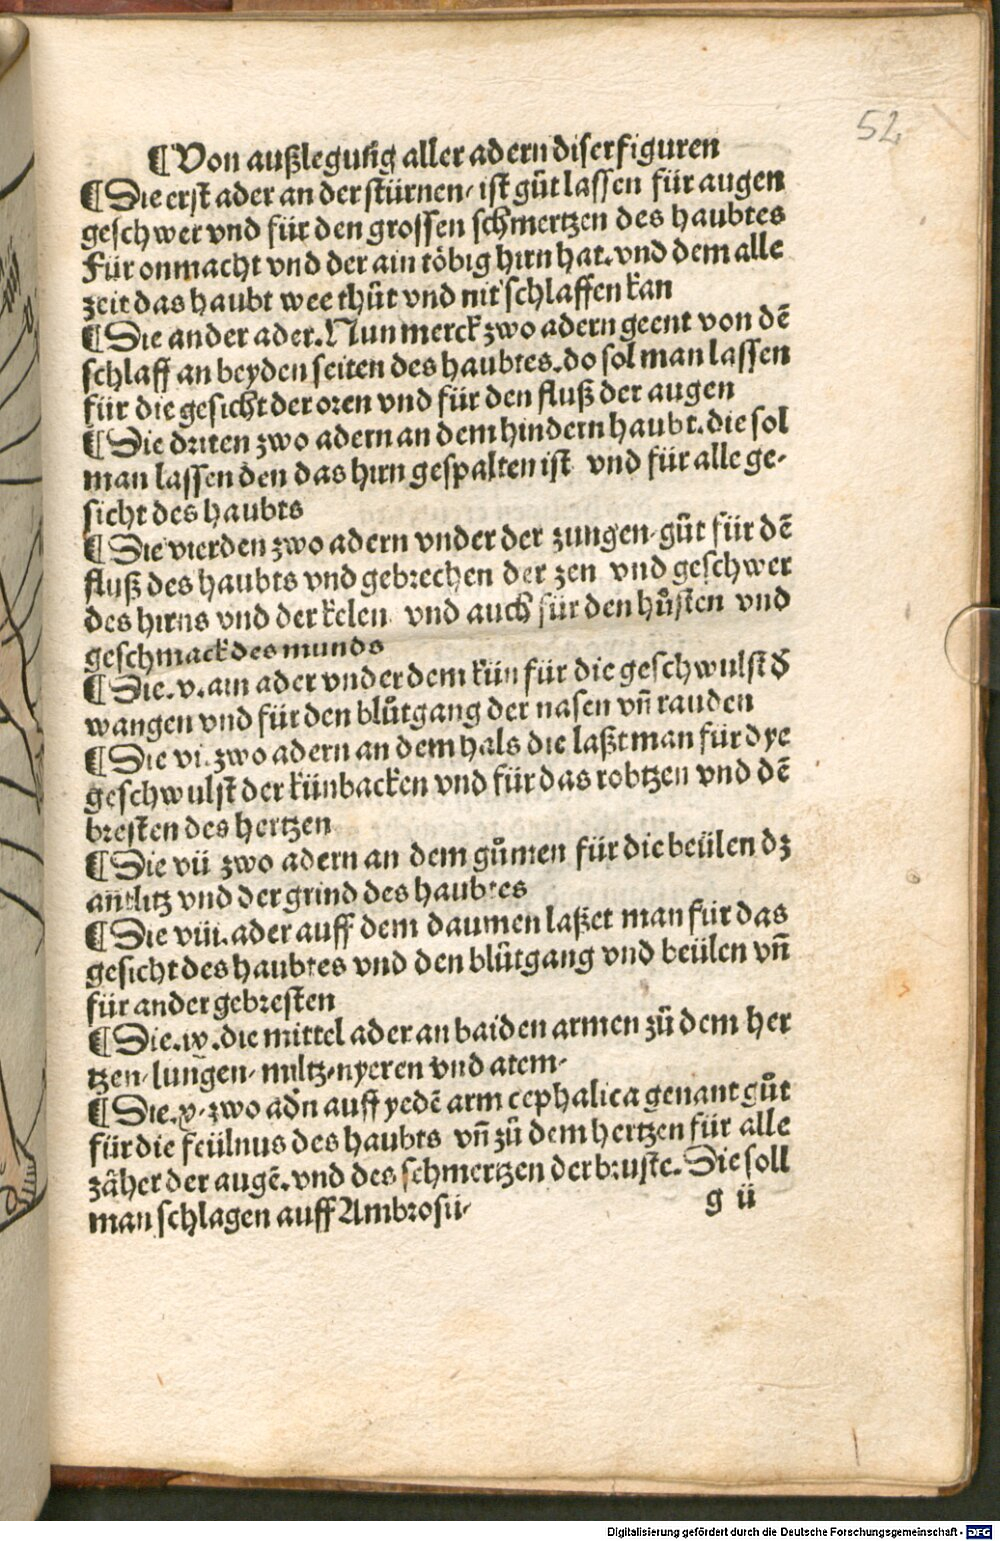 52
¶ Von außlegung aller adern diser figuren
¶ Die erst ader an der stürnen, ist gůt lassen für augen
geschwer vnd für den grossen schmertzen des haubtes
Für onmacht vnd der ain töbig hirn hat. vnd dem alle
zeit das haubt wee thůt vnd nit schlaffen kan
¶ Die ander ader. Nun merck zwo adern geent von dē
schlaff an beyden seiten des haubtes. do sol man lassen
für die gesicht der oren vnd für den fluß der augen
¶ Die driten zwo adern an dem hindern haubt. die sol
man lassen den das hirn gespalten ist vnd für alle ge-
sicht des haubts
¶ Die vierden zwo adern vnder der zungen, gůt für dē
fluß des haubts vnd gebrechen der zen vnd geschwer
des hirns vnd der kelen vnd auch für den hůsten vnd
geschmack des munds
¶ Die .v. ain ader vnder dem kün für die geschwulst d̕
wangen vnd für den blůtgang der nasen vn̄ rauden
¶ Die vi. zwo adern an dem hals die laßt man für dye
geschwulst der künbacken vnd für das robtzen vnd dē
bresten des hertzen
¶ Die vii zwo adern an dem gůmen für die beülen dz
antlitz vnd der grind des haubtes
¶ Die viii. ader auff dem daumen laßet man für das
gesicht des haubtes vnd den blůtgang vnd beülen vn̄
für ander gebresten
¶ Die .ix. die mittel ader an baiden armen zů dem her
tzen, lungen, miltz, nyeren vnd atem,
¶ Die .x. zwo adn̄ auff yedē arm cephalica genant gůt
für die feülnus des haubts vn̄ zů dem hertzen für alle
zäher der augē. vnd des schmertzen der bruste. Die soll
man schlagen auff Ambrosii,
g ii
Digitalisierung gefördert durch die Deutsche Forschungsgemeinschaft - DFG